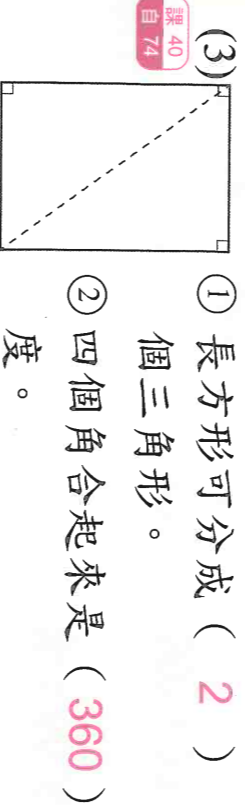 (3)
課 40
自 74
① 長方形可分成 ( 2 )
個三角形。
② 四個角合起來是 ( 360 )
度。